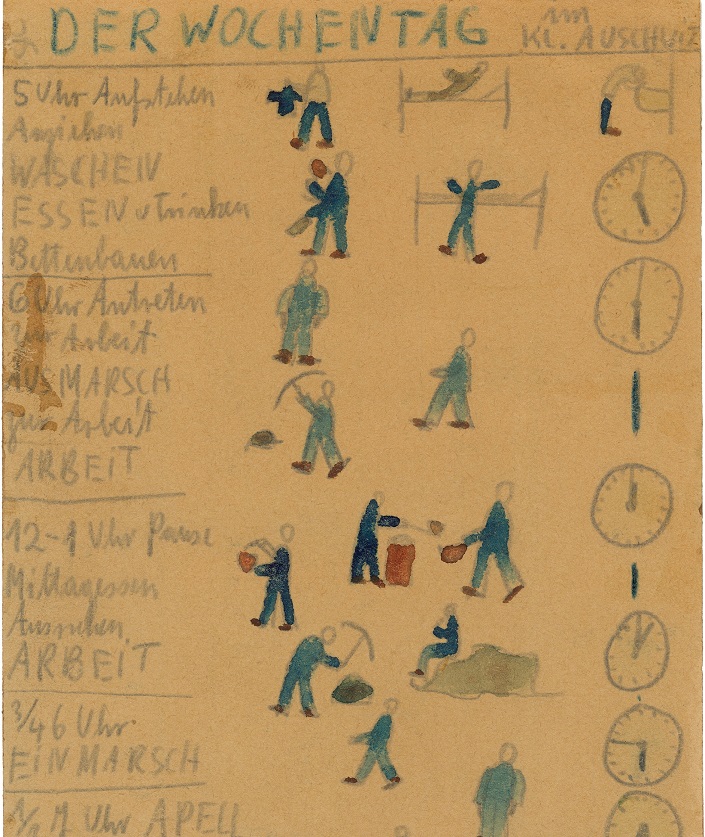 DER WOCHENTAG im
KL. AUSCHWITZ
5 Uhr Aufstehen
Anziehen
WASCHEN
ESSEN u Trinken
Bettenbauen
6 Uhr Antreten
zur Arbeit
AUSMARSCH
zur Arbeit
ARBEIT
12-1 Uhr Pause
Mittagessen
Ausruhen
ARBEIT
3/4 6 Uhr
EINMARSCH
1/2 7 Uhr APELL